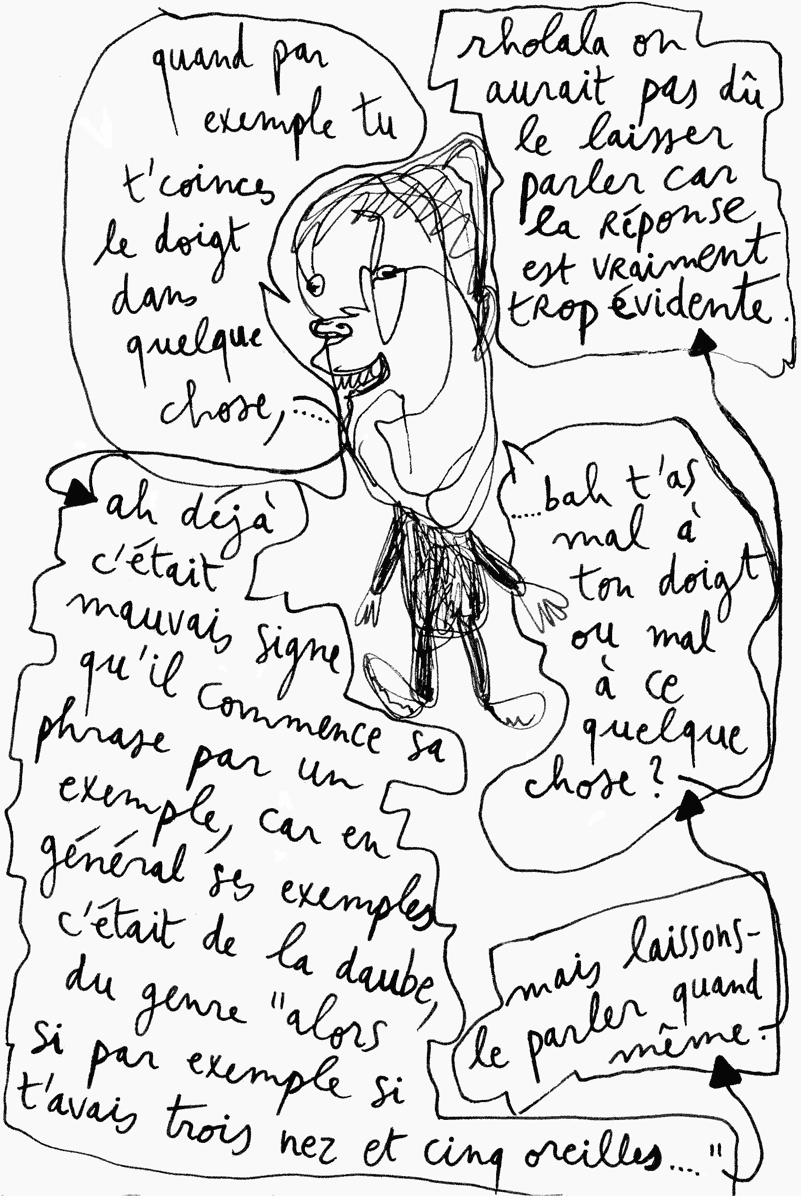 quand par
exemple tu
t'coinces
le doigt
dans
quelque
chose,.....
ah déjà
c'était
mauvais signe
qu'il commence sa
phrase par un
exemple, car en
général ses exemples
c'était de la daube,
du genre "alors
si par exemple si
t'avais trois nez et cinq oreilles...."
mais laissons-
le parler quand
même.
.....bah t'as
mal à
ton doigt
ou mal
à ce
quelque
chose?
rholala on
aurait pas dû
le laisser
parler car
la RÉPONSE
est VRAIMENT
tROP évidente.